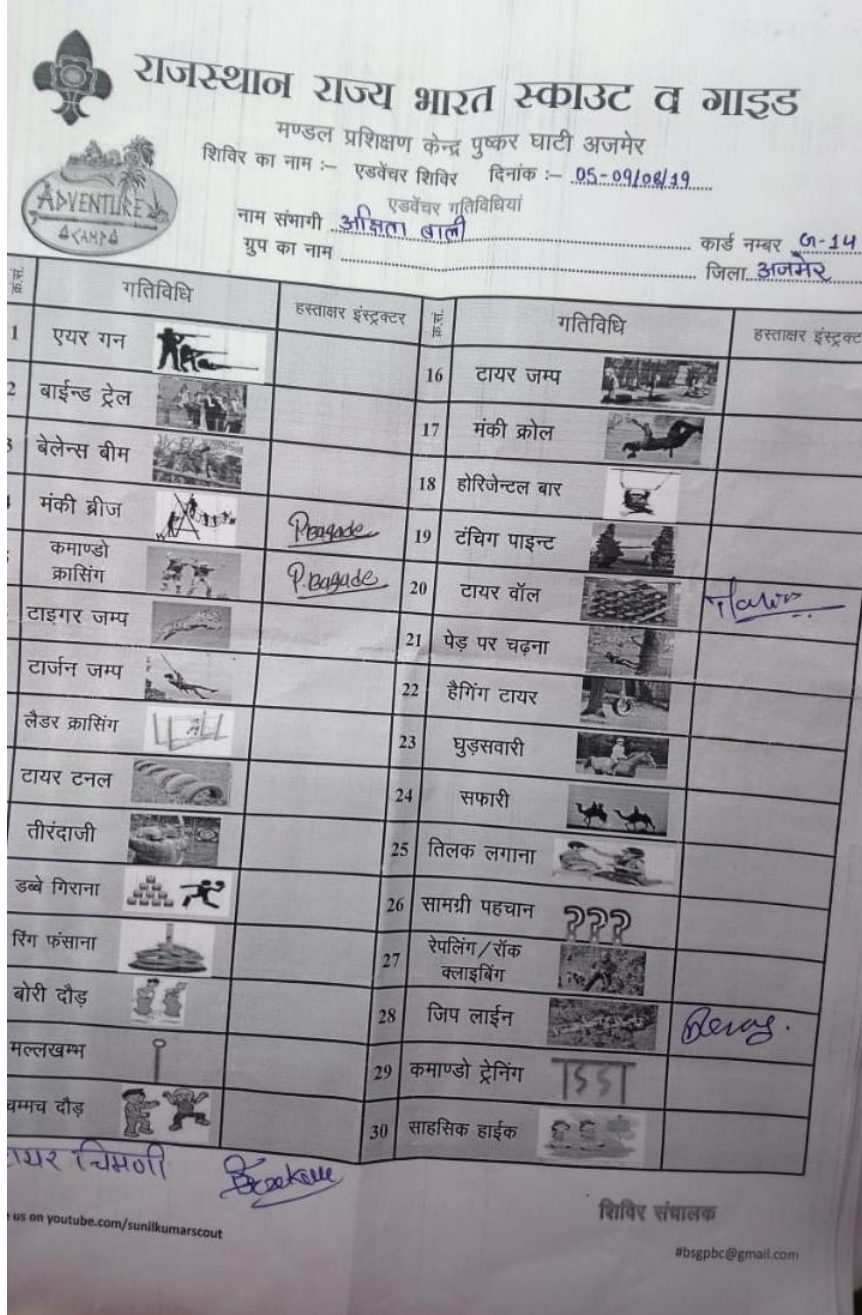 राजस्थान राज्य भारत स्काउट व गाइड
मण्डल प्रशिक्षण केन्द्र पुष्कर घाटी अजमेर
शिविर का नाम :– एडवेंचर शिविर दिनांक :– 05-09/08/19
एडवेंचर गतिविधियां
ADVENTURE
CAMPA
नाम संभागी अक्षिता बाली कार्ड नम्बर G-14
ग्रुप का नाम जिला अजमेर
क्र.सं. गतिविधि हस्ताक्षर इंस्ट्रक्टर क्र.सं. गतिविधि हस्ताक्षर इंस्ट्रक्ट
1 एयर गन 16 टायर जम्प
2 बाईन्ड ट्रेल 17 मंकी क्रोल
3 बेलेन्स बीम 18 होरिजेन्टल बार
मंकी ब्रीज Pbagade 19 टंचिग पाइन्ट
कमाण्डो
क्रासिंग P.bagade 20 टायर वॉल
टाइगर जम्प 21 पेड़ पर चढ़ना
टार्जन जम्प 22 हैगिंग टायर
लैडर क्रासिंग 23 घुड़सवारी
टायर टनल 24 सफारी
तीरंदाजी 25 तिलक लगाना
डब्बे गिराना 26 सामग्री पहचान ???
रिंग फंसाना 27 रेपलिंग/रॉक
क्लाइबिंग
बोरी दौड़ 28 जिप लाईन
मल्लखम्भ 29 कमाण्डो ट्रेनिंग
चम्मच दौड़ 30 साहसिक हाईक
टायर चिमणी
शिविर संचालक
us on youtube.com/sunilkumarscout
#bsgpbc@gmail.com